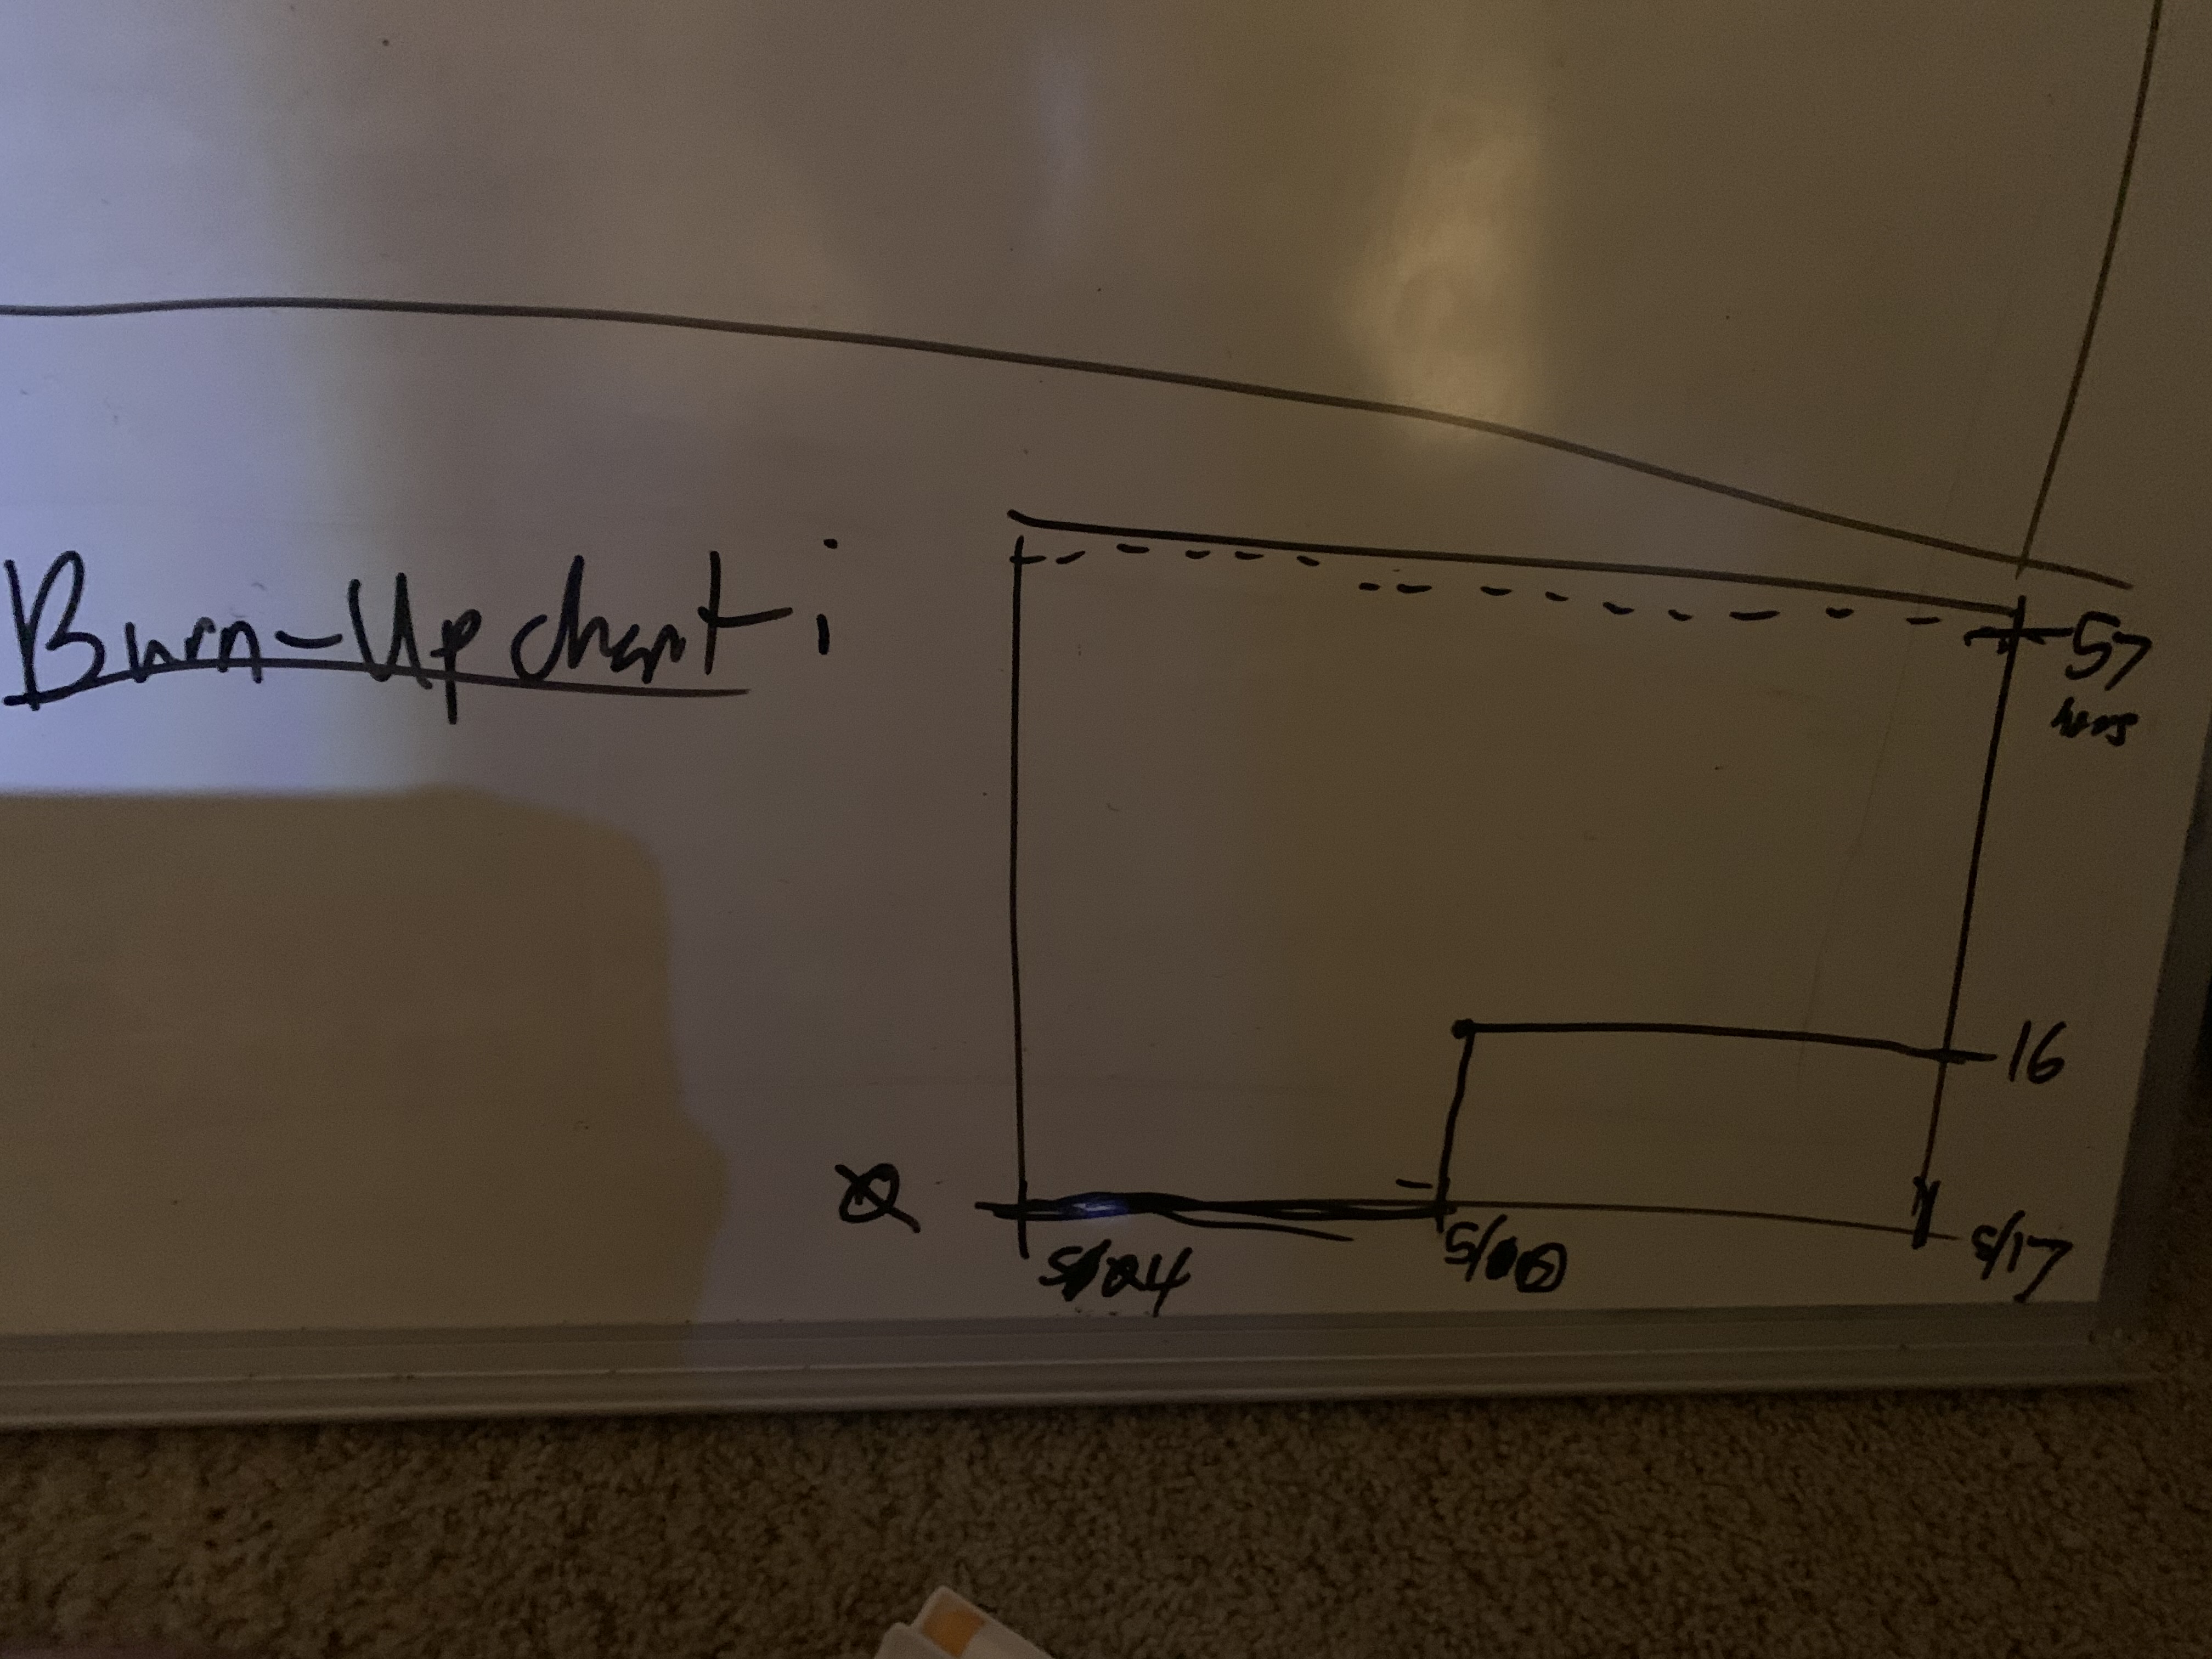 Burn-Up chart:
57
hrs
16
0
5/04
5/17